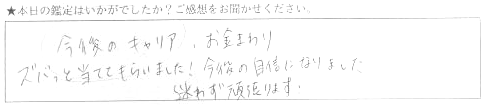 ★本日の鑑定はいかがでしたか？ご感想をお聞かせください。
今後のキャリア、お金まわり
ズバっと当ててもらいました！今後の自信になりました
迷わず頑張ります。